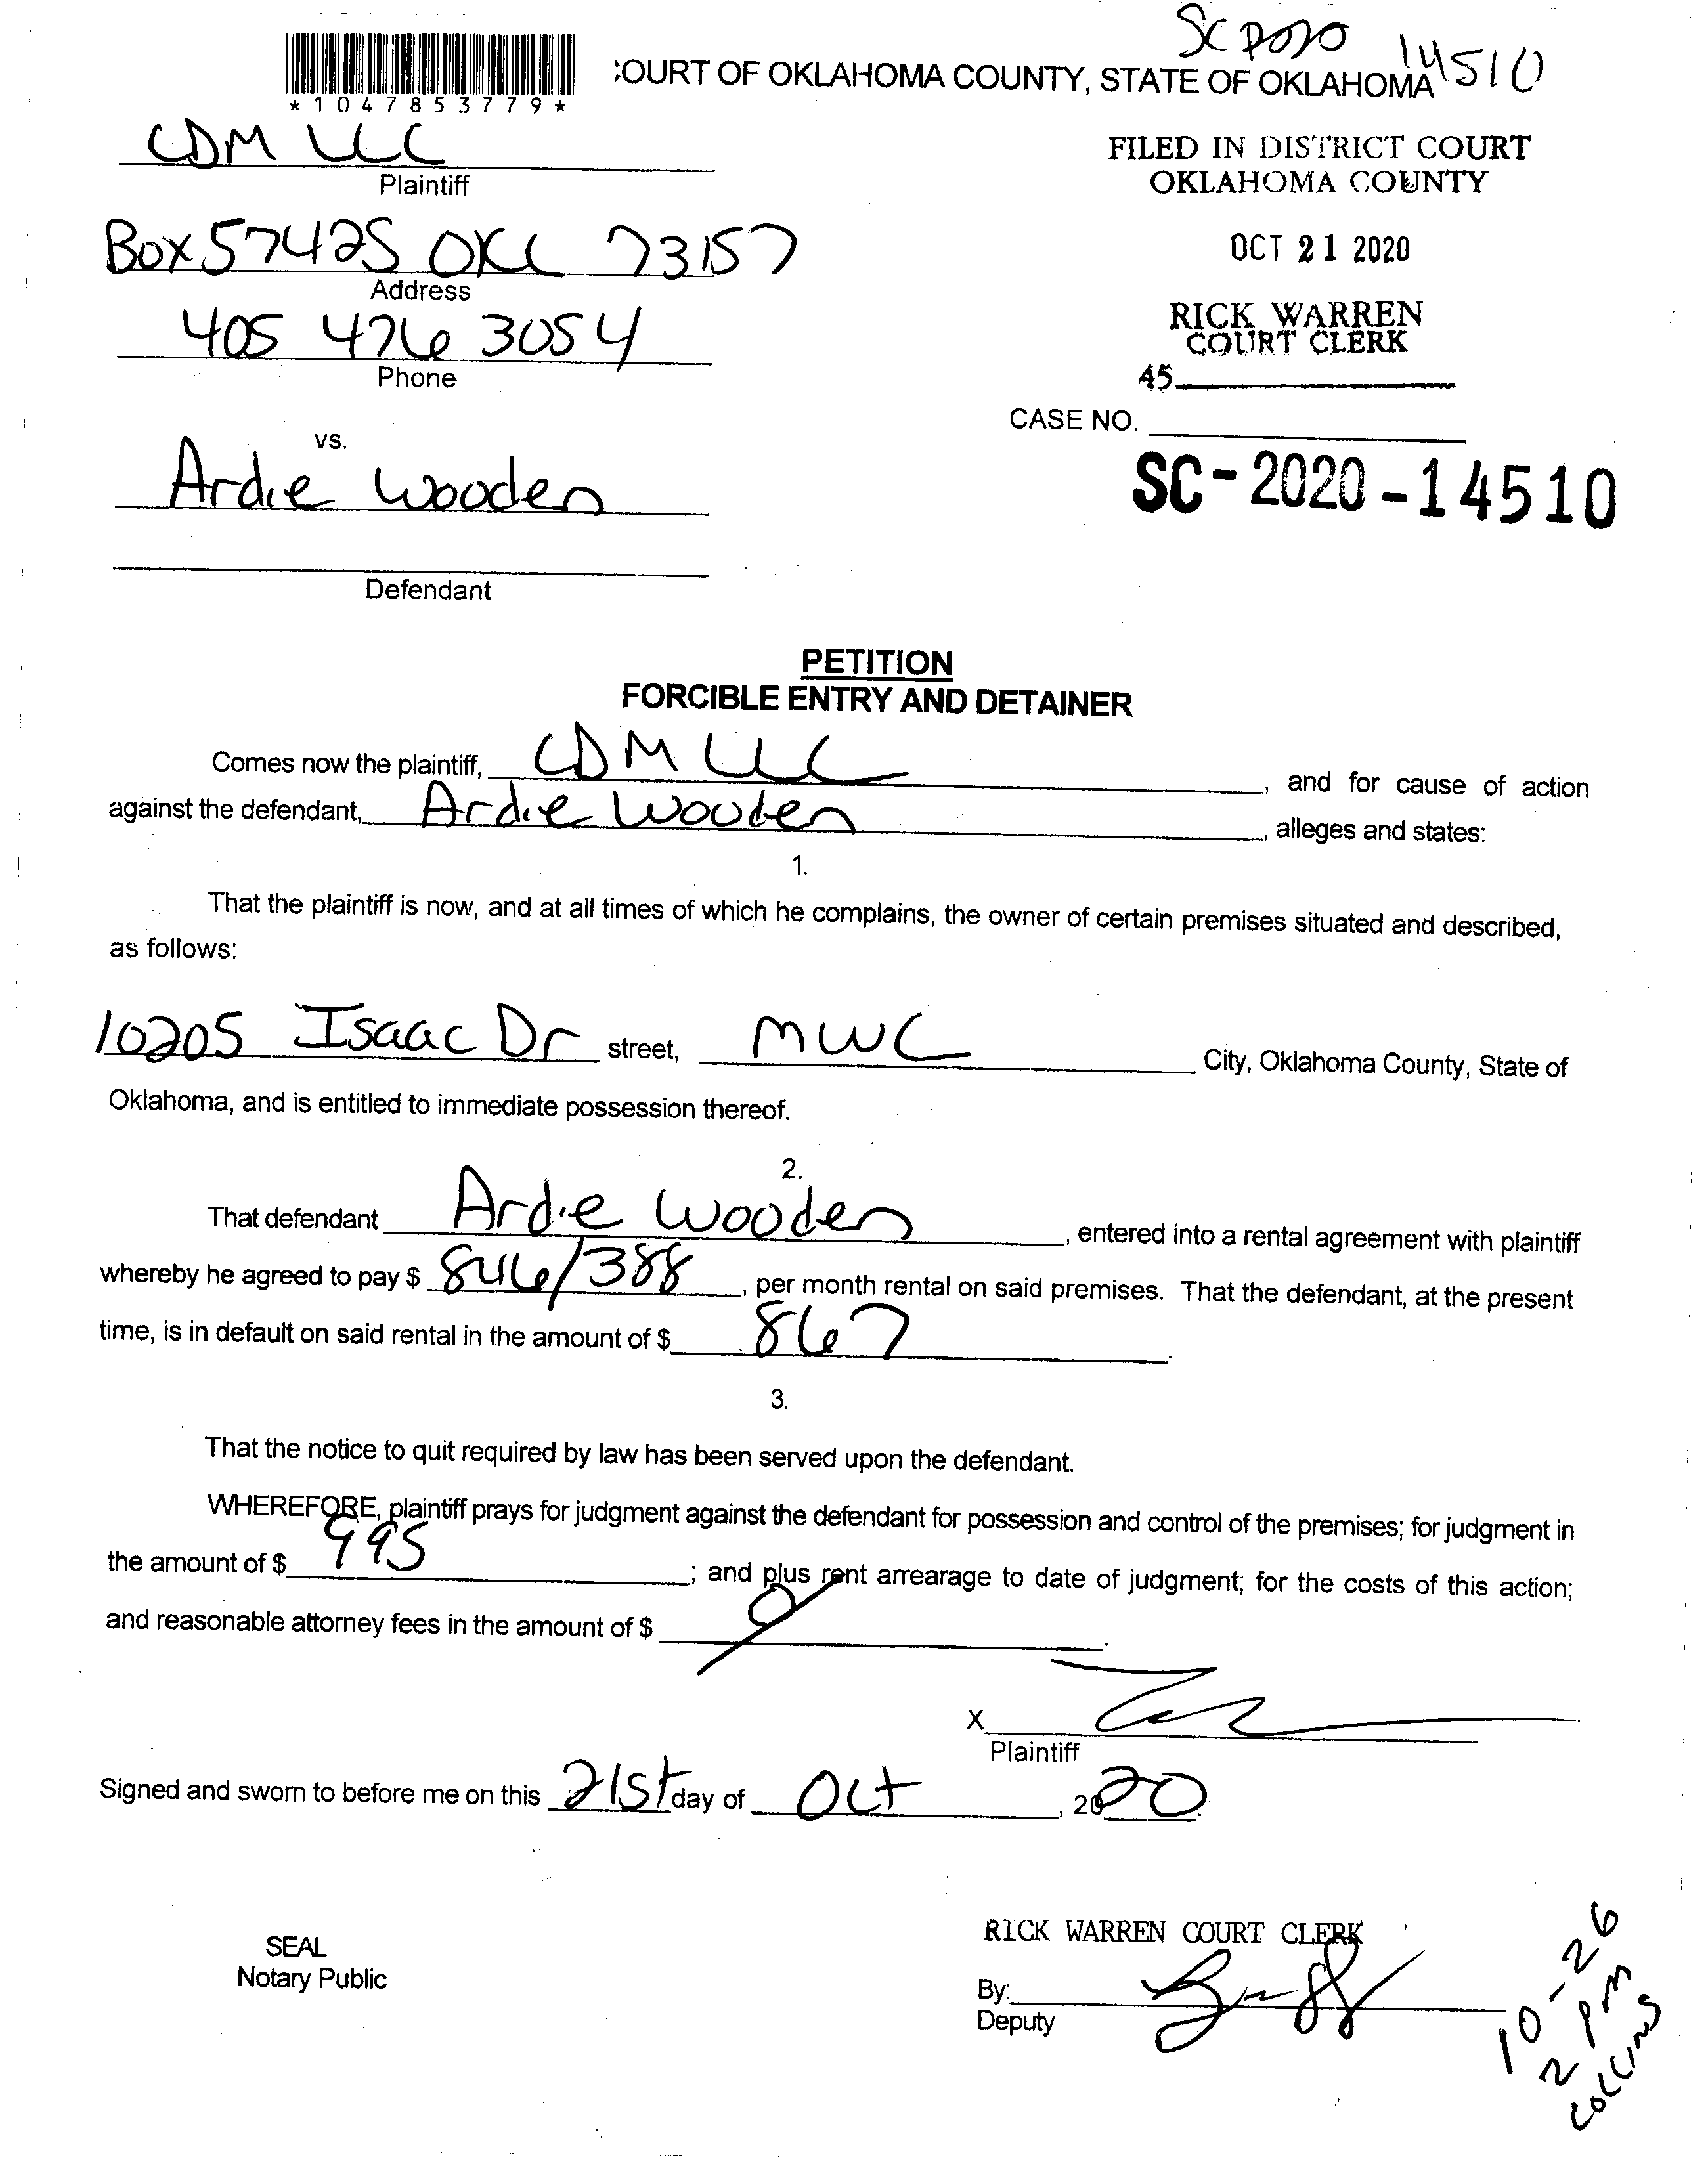 SC 2020 14510
*1047853779*
COURT OF OKLAHOMA COUNTY, STATE OF OKLAHOMA
CDM LLC
Plaintiff
FILED IN DISTRICT COURT
OKLAHOMA COUNTY
Box 57425 OKC 73157
Address
OCT 21 2020
405 476 3054
Phone
RICK WARREN
COURT CLERK
45
CASE NO.
vs.
Ardie Wooden
SC-2020-14510
Defendant
PETITION
FORCIBLE ENTRY AND DETAINER
Comes now the plaintiff, CDM LLC, and for cause of action
against the defendant, Ardie Wooden, alleges and states:
1.
That the plaintiff is now, and at all times of which he complains, the owner of certain premises situated and described,
as follows:
10205 Isaac Dr street, MWC City, Oklahoma County, State of
Oklahoma, and is entitled to immediate possession thereof.
2.
That defendant Ardie Wooden, entered into a rental agreement with plaintiff
whereby he agreed to pay $ 846/388, per month rental on said premises. That the defendant, at the present
time, is in default on said rental in the amount of $ 867.
3.
That the notice to quit required by law has been served upon the defendant.
WHEREFORE, plaintiff prays for judgment against the defendant for possession and control of the premises; for judgment in
the amount of $ 995; and plus rent arrearage to date of judgment; for the costs of this action;
and reasonable attorney fees in the amount of $ 0.
X
Plaintiff
Signed and sworn to before me on this 21st day of Oct, 2020.
SEAL
Notary Public
RICK WARREN COURT CLERK
By:
Deputy
10-26
2 pm
Collins